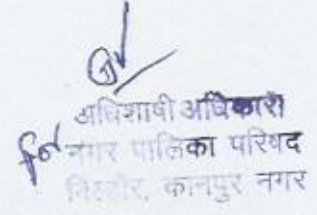 अधिशाषी अधिकारी
for नगर पालिका परिषद
बिल्हौर, कानपुर नगर